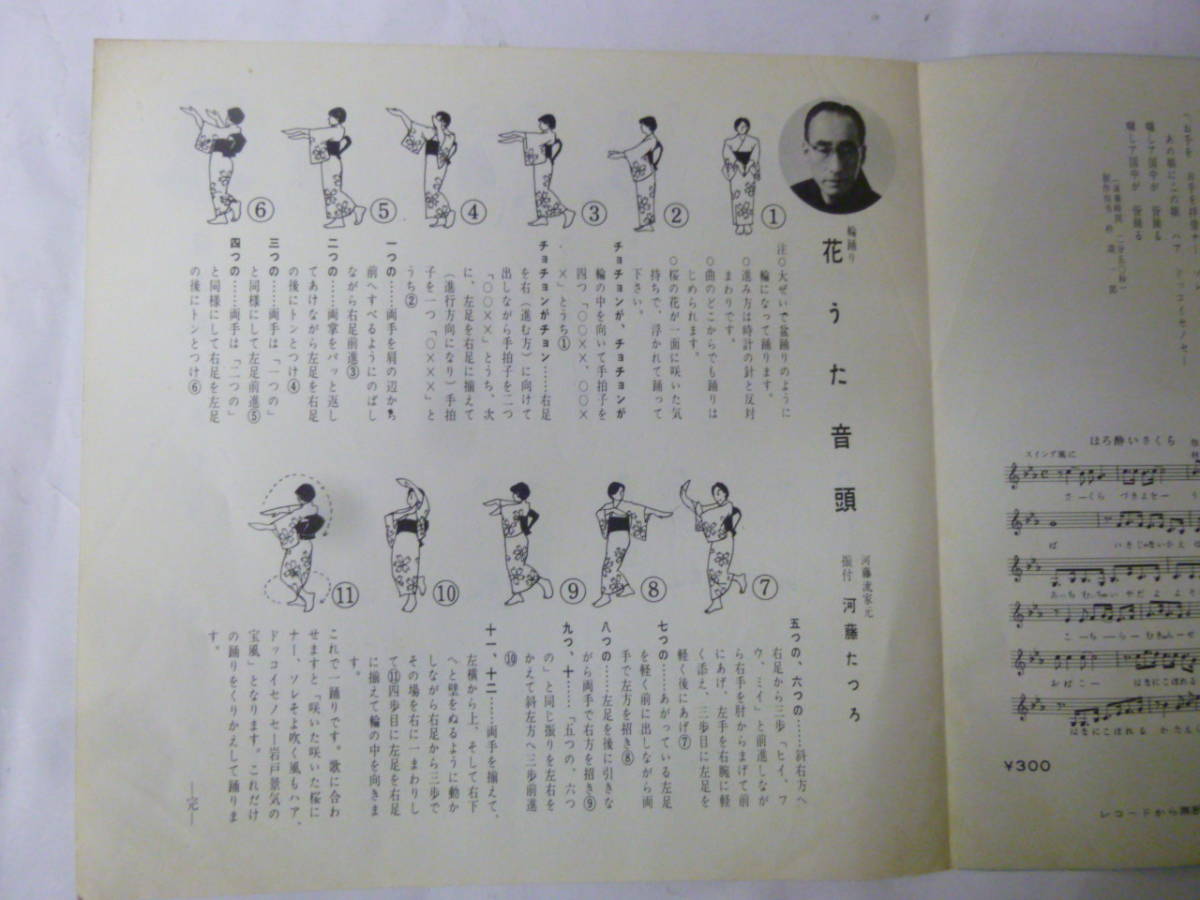 あの娘にこの娘　ハア　ドッコイセノセー
囃して国中が　皆踊る
囃して国中が　皆踊る
ほろ酔いさくら
スイング風に
さーくら　づきよをー　う
こーちーらー
おばこー　はなにこぼれる
はなにこぼれる　かたえく
¥300
レコードから無断
輪踊り
花うた音頭
河藤流家元
振付　河藤たつろ
①
②
③
④
⑤
⑥
注○大ぜいで盆踊りのように
輪になって踊ります。
○進み方は時計の針と反対
まわりです。
○曲のどこからでも踊りは
じめられます。
○桜の花が一面に咲いた気
持ちで、浮かれて踊って
下さい。
チョチョンが、チョチョンが
輪の中を向いて手拍子を
四つ「○○××、○○×
×」とうち①
チョチョンがチョン……右足
を右（進む方）に向けて
出しながら手拍子を二つ
「○○××」とうち、次
に、左足を右足に揃えて
（進行方向になり）手拍
子を一つ「○×××」と
うち②
一つの……両手を肩の辺から
前へすべるようにのばし
ながら右足前進③
二つの……両掌をパッと返し
てあけながら左足を右足
の後にトンとつけ④
三つの……両手は「一つの」
と同様にして左足前進⑤
四つの……両手は「二つの」
と同様にして右足を左足
の後にトンとつけ⑥
⑦
⑧
⑨
⑩
⑪
五つの、六つの……斜右方へ
右足から三歩「ヒイ、フ
ウ、ミイ」と前進しなが
ら右手を肘からまげて前
にあげ、左手を右腕に軽
く添え、三歩目に左足を
軽く後にあげ⑦
七つの……あがっている左足
を軽く前に出しながら両
手で左方を招き⑧
八つの……左足を後に引きな
がら両手で右方を招き⑨
九つ、十……「五つの、六つ
の」と同じ振りを左右を
かえて斜左方へ三歩前進
⑩
十一、十二……両手を揃えて、
左横から上、そして右下
へと壁をぬるように動か
しながら右足から三歩で
その場を右に一まわりし
て⑪四歩目に左足を右足
に揃えて輪の中を向きま
す。
これで一踊りです。歌に合わ
せますと「咲いた咲いた桜に
ナー、ソレそよ吹く風もハア、
ドッコイセノセー岩戸景気の
宝風」となります。これだけ
の踊りをくりかえして踊りま
す。
―完―